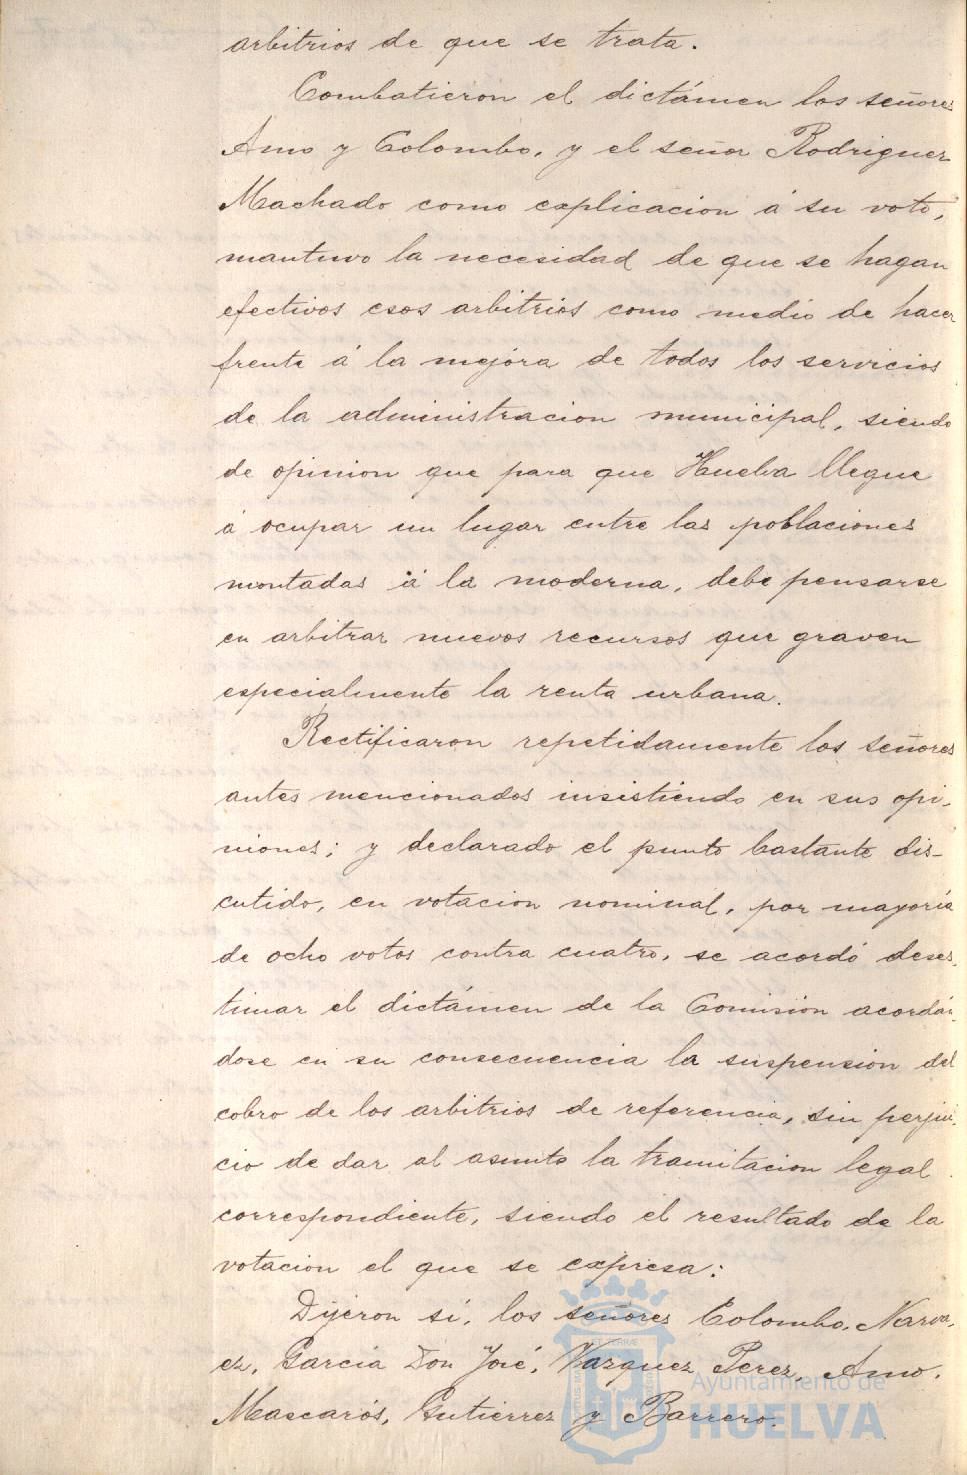 arbitrios de que se trata.
Combatieron el dictámen los señores
Amo y Colombo, y el señor Rodriguez
Machado como explicacion á su voto,
mantuvo la necesidad de que se hagan
efectivos esos arbitrios como medio de hacer
frente á la mejora de todos los servicios
de la administracion municipal, siendo
de opinion que para que Huelva llegue
á ocupar un lugar entre las poblaciones
montadas á la moderna, debe pensarse
en arbitrar nuevos recursos que graven
especialmente la renta urbana.
Rectificaron repetidamente los señores
antes mencionados insistiendo en sus opi-
niones; y declarado el punto bastante dis-
cutido, en votacion nominal, por mayoría
de ocho votos contra cuatro, se acordó deses-
timar el dictámen de la Comision acordán-
dose en su consecuencia la suspension del
cobro de los arbitrios de referencia, sin perjui-
cio de dar al asunto la tramitacion legal
correspondiente, siendo el resultado de la
votacion el que se expresa:
Dijeron sí, los señores Colombo, Narva-
ez, García Don José, Vazquez Perez, Amo,
Mascarós, Gutierrez y Barrero.
Ayuntamiento de
HUELVA